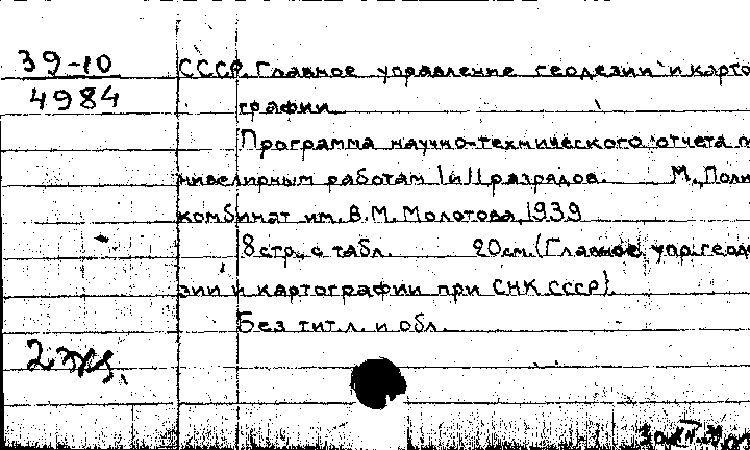 39-10
4984
СССР. Главное управление геодезии и карто
графии
Программа научно-технического отчета п
нивелирным работам I и II разрядов. М., Поли
комбинат им. В.М. Молотова, 1939
8 стр. с табл. 20 см. (Главное упр. геоде
зии и картографии при СНК СССР).
Без тит. л. и обл.
2 экз.